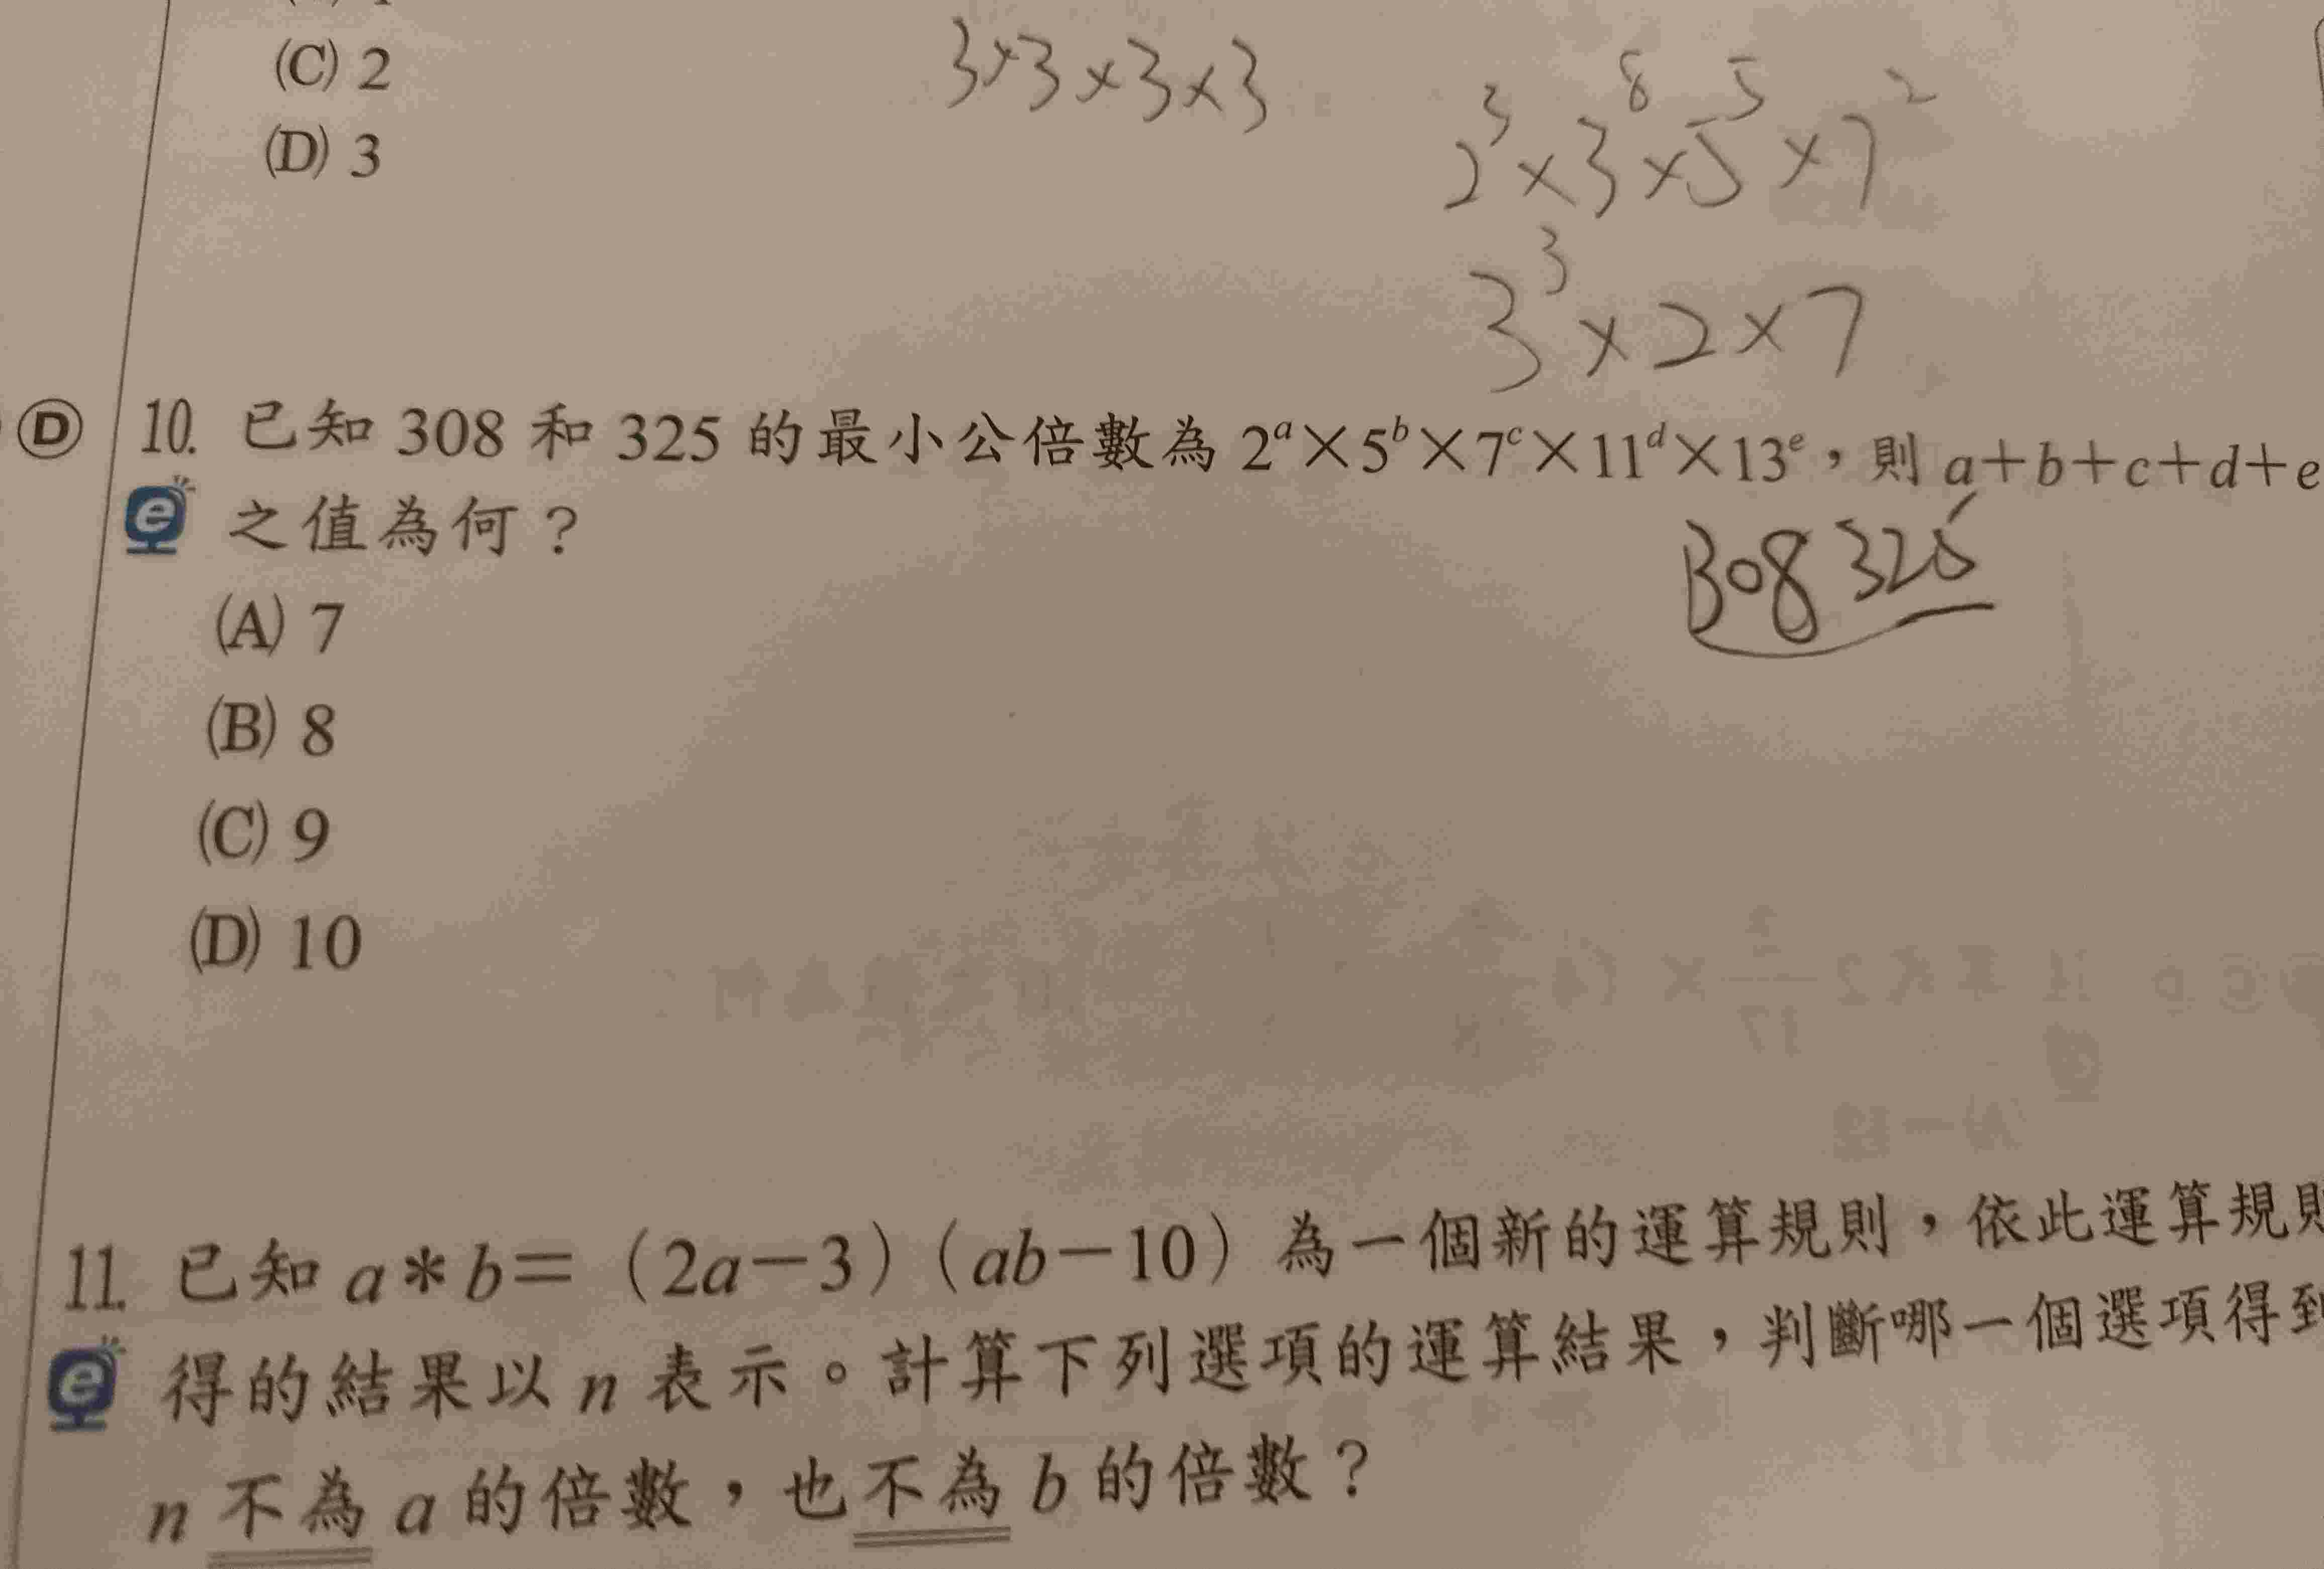 (C) 2
(D) 3
3×3×3×3
2³×3⁸×5⁵×7²
3³×2×7
Ⓓ 10. 已知 308 和 325 的最小公倍數為 2ᵃ×5ᵇ×7ᶜ×11ᵈ×13ᵉ，則 a+b+c+d+e
e 之值為何？
308 325
(A) 7
(B) 8
(C) 9
(D) 10
11. 已知 a＊b＝（2a－3）（ab－10）為一個新的運算規則，依此運算規則
e 得的結果以 n 表示。計算下列選項的運算結果，判斷哪一個選項得到
n 不為 a 的倍數，也不為 b 的倍數？